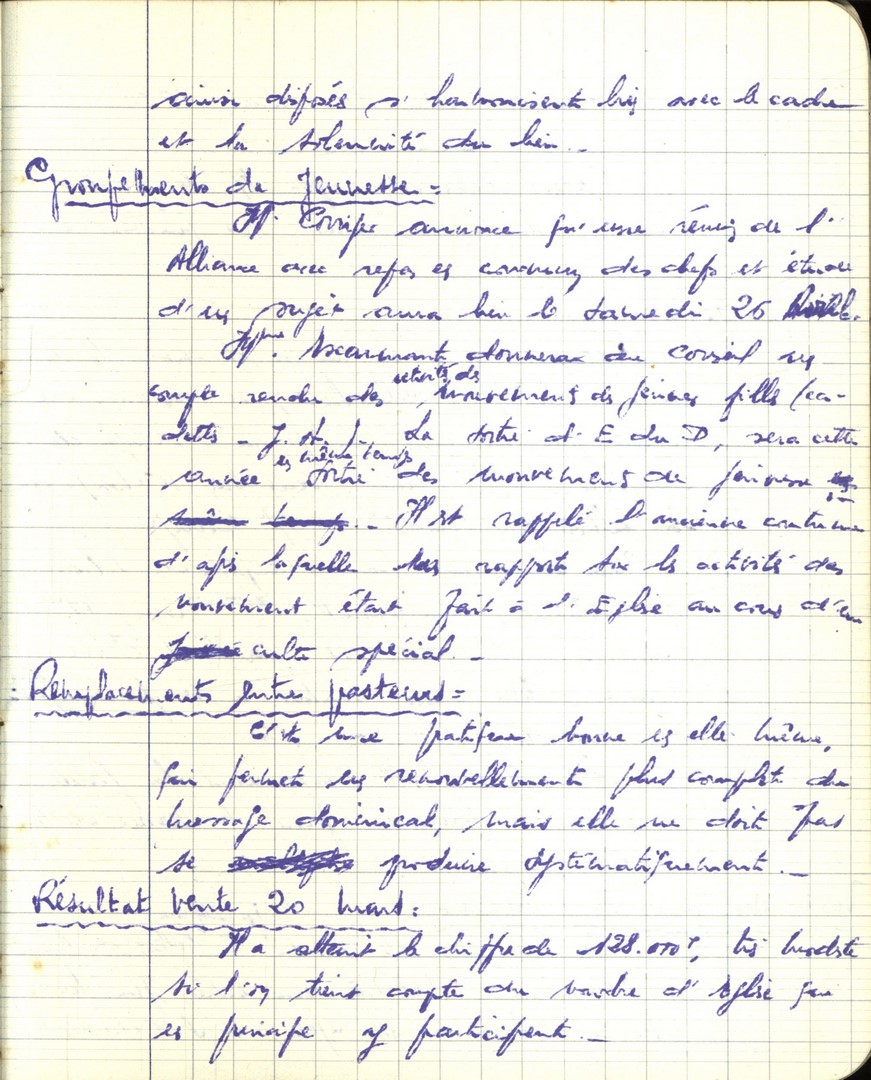 ainsi disposés s'harmonisent bien avec le cadre
et la solennité du lieu. _
Groupements de Jeunesse =
M. annonce qu'une réunion de l'
Alliance avec repas en commun des chefs et étude
d'un sujet aura lieu le samedi 26
donnera au Conseil un
compte rendu des activités des mouvements de jeunes filles (ca-
dettes _ La sortie d'E du D, sera cette
année en même temps sortie des mouvements de jeunesse en
même temps. _ Il est rappelé l'ancienne coutume
d'après laquelle un rapport sur les activités des
mouvements était fait à l'Eglise au cours d'un
culte spécial. _
Remplacements entre pasteurs =
C'est une pratique bonne en elle même,
qui permet un renouvellement plus complet du
message dominical, mais elle ne doit pas
se produire systématiquement. _
Résultat vente 20 mars :
Il a atteint le chiffre de 128.000f, très modeste
si l'on tient compte du nombre d'Eglise qui
en principe y participent. _